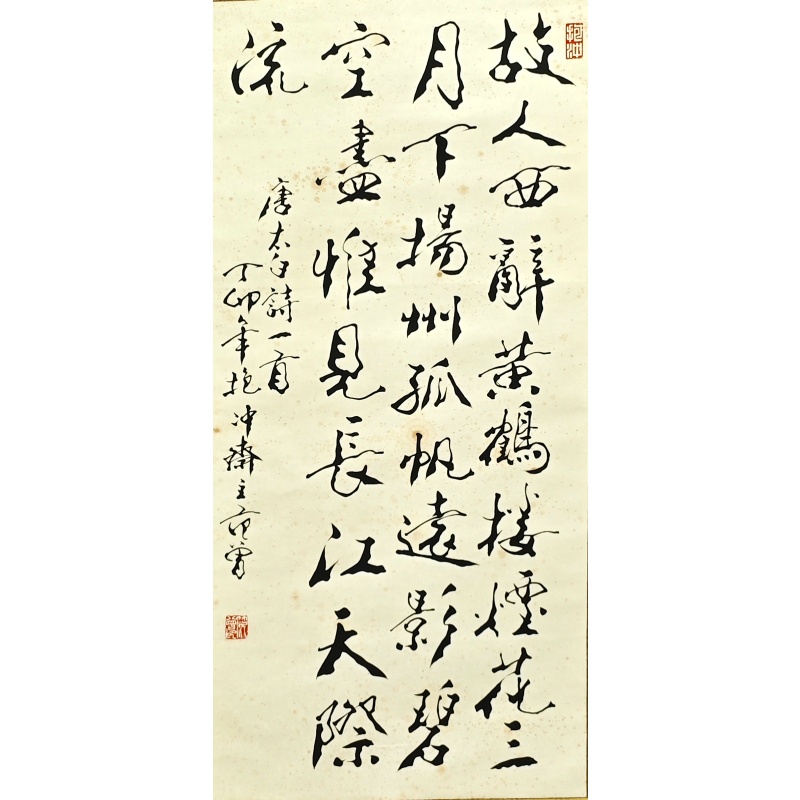 故人西辭黃鶴樓煙花三
月下揚州孤帆遠影碧
空盡惟見長江天際
流
唐太白詩一首
丁卯年抱冲齋主范曾
抱冲